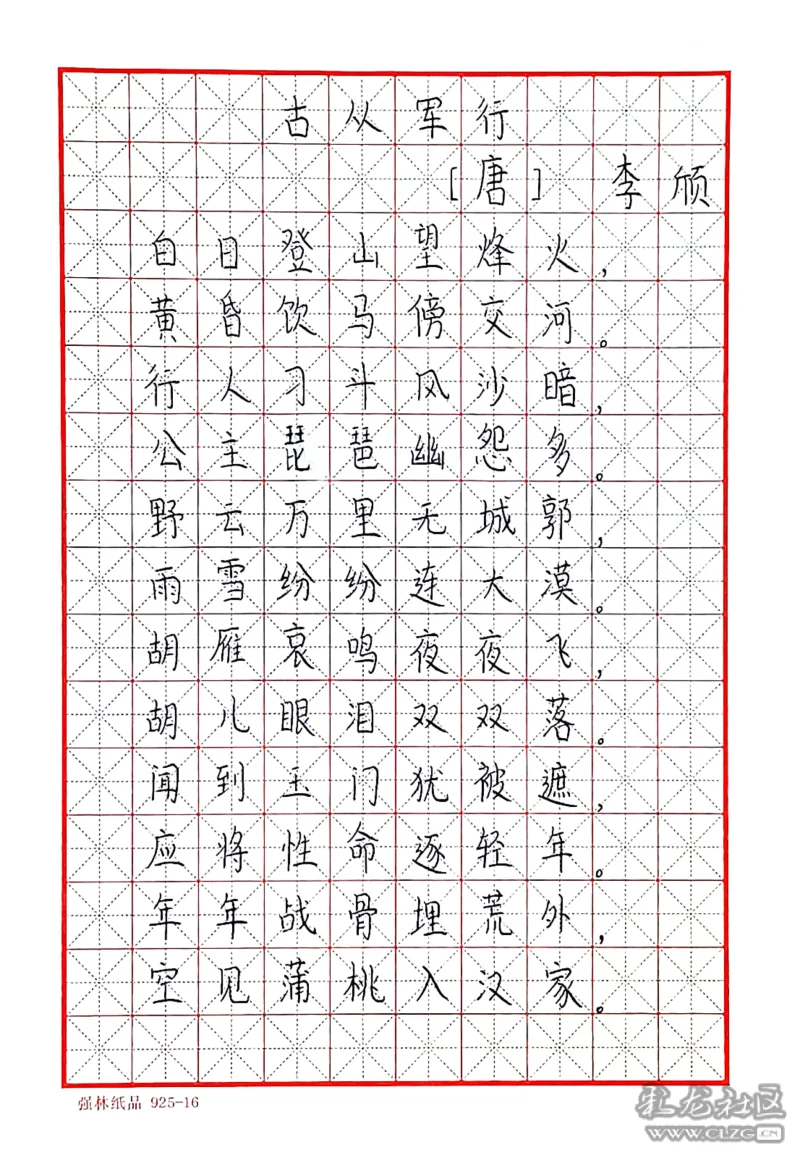 古从军行
[唐] 李颀
白日登山望烽火,
黄昏饮马傍交河。
行人刁斗风沙暗,
公主琵琶幽怨多。
野云万里无城郭,
雨雪纷纷连大漠。
胡雁哀鸣夜夜飞,
胡儿眼泪双双落。
闻到玉门犹被遮,
应将性命逐轻年。
年年战骨埋荒外,
空见蒲桃入汉家。
强林纸品 925-16
化龙社区
WWW.CLZG.CN